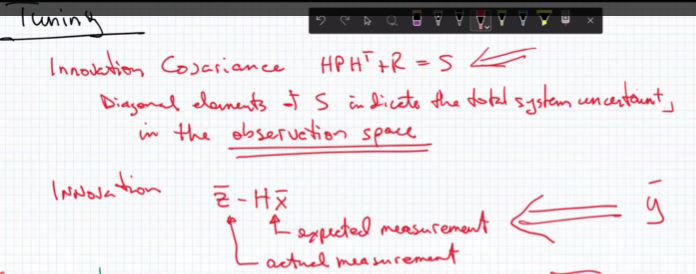 Tuning
Innovation Covariance HPHᵀ+R = S
Diagonal elements of S indicate the total system uncertainty
in the observation space
Innovation z̄ - Hx̄ ȳ
expected measurement
actual measurement